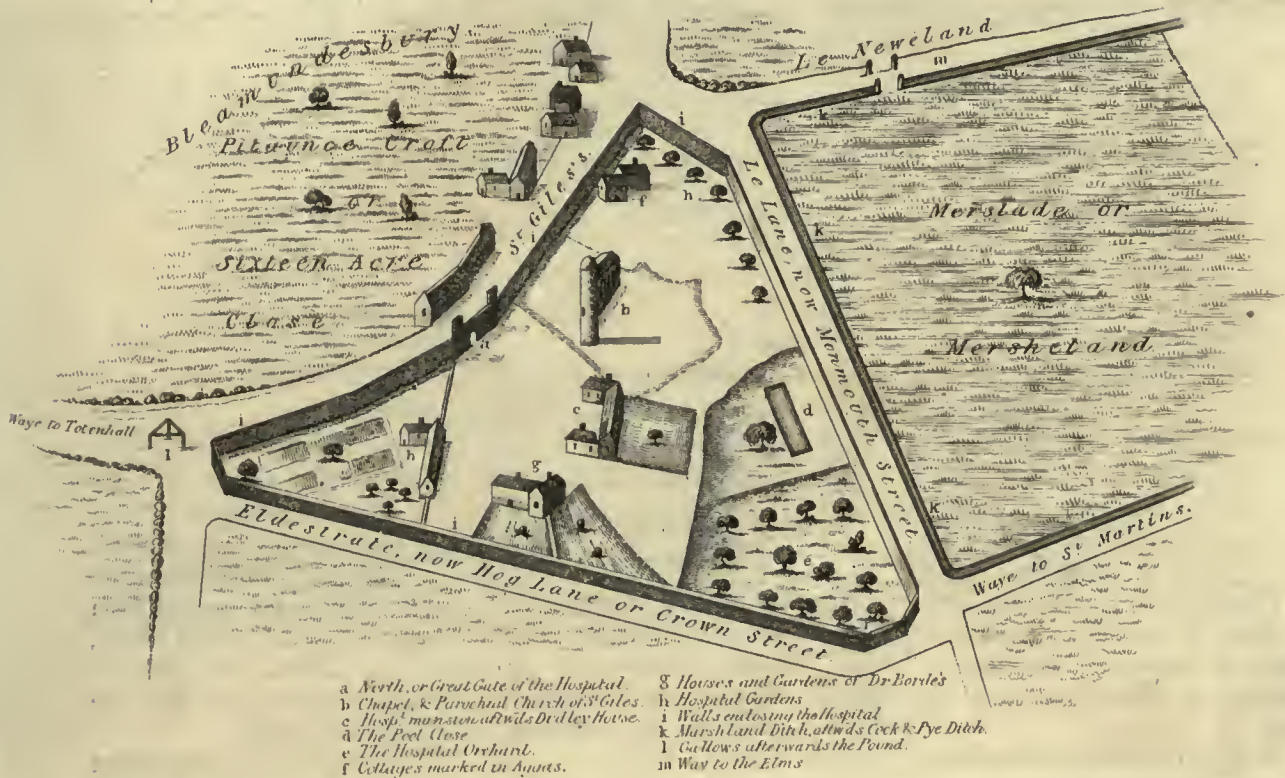 Bleamundesbury
Le Neweland
m
Pitaunce Croft
or
Sixteen Acre
Close
St Giles's.
i
k
f
h
Le Lane now Monmouth Street.
k
Merslade or
Mersheland
b
a
c
d
Waye to Totenhall
l
i
h
g
i
e
k
Eldestrate, now Hog Lane or Crown Street.
Waye to St Martins.
a North, or Great Gate of the Hospital.
b Chapel, & Parochial Church of St Giles.
c Hospl mansion aftwds Dudley House.
d The Pool Close
e The Hospital Orchard.
f Cottages marked in Aggas.
g Houses and Gardens of Dr Borde's
h Hospital Gardens
i Walls enclosing the Hospital
k Marshland Ditch, aftwds Cock & Pye Ditch.
l Gallows afterwards the Pound.
m Way to the Elms